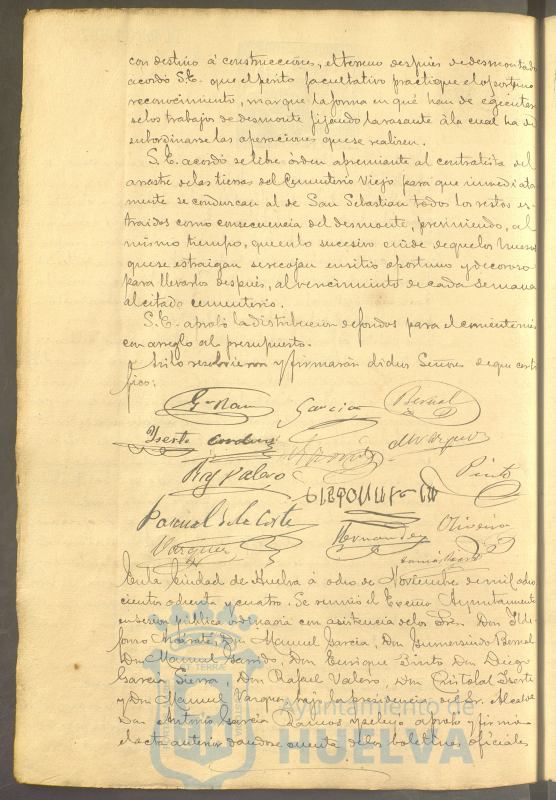 con destino á construcciones, el terreno despues de desmontado
acordó S.E. que el perito facultativo practique el oportuno
reconocimiento, marque la forma en qué han de ejecutar
se los trabajos de desmonte fijando la rasante á la cual ha de
subordinarse las operaciones que se realicen.
S. E. acordó se libre órden apremiante al contratista del
arrastre de las tierras del Cementerio Viejo para que inmediata
mente se conduzcan al de San Sebastian todos los restos es-
traidos como consecuencia del desmonte, previniendo, al
mismo tiempo, que en lo sucesivo cuide de que los huesos
que se estraigan se recojan en sitio oportuno y decoroso
para llevarlos despues, al vencimiento de cada semana
al citado cementerio.
S. E. aprobó la distribucion de fondos para el corriente mes
con arreglo al presupuesto.
Asi lo resolvieron y firmarán dichos Señores de que certi
fico;
Garcia Bernal
Yserte Vazquez
Rafl Valero Pinto
Pascual de la Corte Hernandez Oliveira
Vazquez
En la Ciudad de Huelva á ocho de Noviembre de mil ocho
cientos ochenta y cuatro. Se reunió el Excmo Ayuntamiento
en sesion publica ordinaria con asistencia de los Sres. Don Ilde
fonso Don Manuel Garcia, Don Gumersindo Bernal
Don Manuel Don Enrique Pinto Don Diego
Garcia Sierra, Don Rafael Valero, Don Cristobal Yserte
y Don Manuel Vazquez bajo la presidencia del Sr. Alcalde
Don Antonio Garcia Ramos y se leyó aprobó y firmó
el acta anterior dandose cuenta de los boletines oficiales
Ayuntamiento de
HUELVA